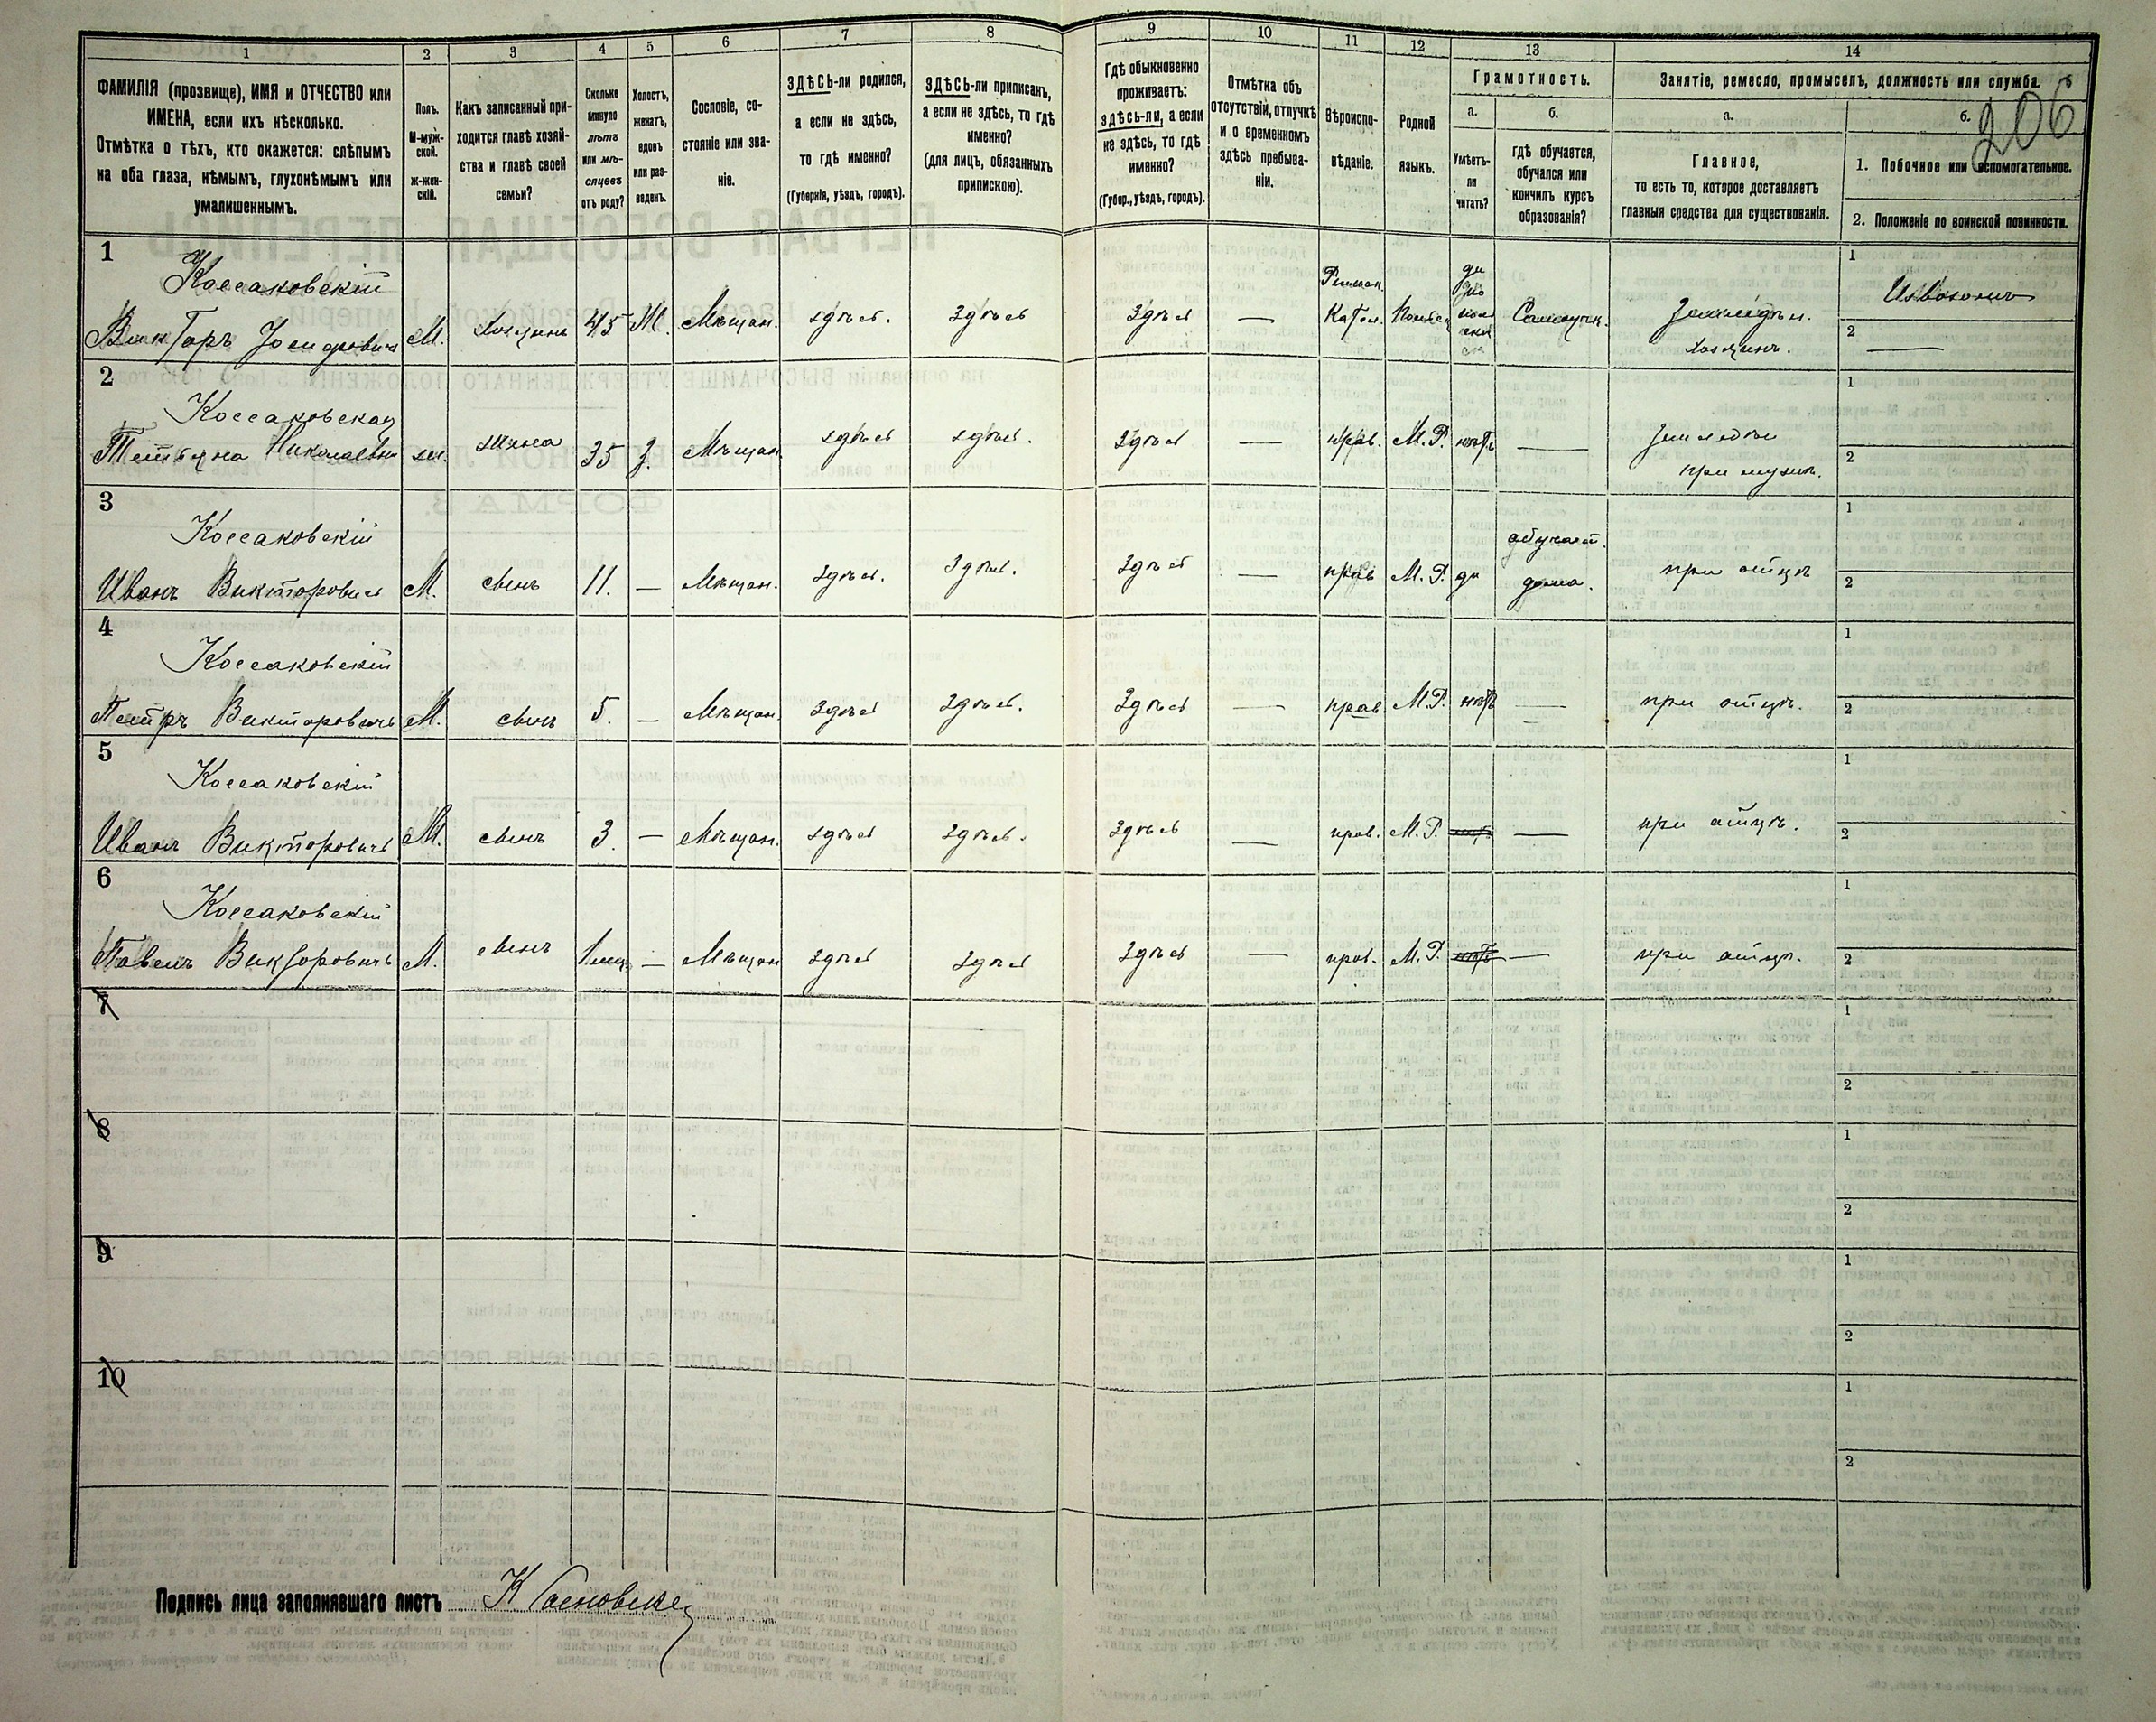 1 2 3 4 5 6 7 8 9 10 11 12 13 14
ФАМИЛІЯ (прозвище), ИМЯ и ОТЧЕСТВО или
ИМЕНА, если ихъ нѣсколько.
Отмѣтка о тѣхъ, кто окажется: слѣпымъ
на оба глаза, нѣмымъ, глухонѣмымъ или
умалишеннымъ.
Полъ.
М-муж-
ской.
ж-жен-
скій.
Какъ записанный при-
ходится главѣ хозяй-
ства и главѣ своей
семьи?
Сколько
минуло
лѣтъ
или мѣ-
сяцевъ
отъ роду?
Холостъ,
женатъ,
вдовъ
или раз-
веденъ.
Сословіе, со-
стояніе или зва-
ніе.
ЗДѢСЬ-ли родился,
а если не здѣсь,
то гдѣ именно?
(Губернія, уѣздъ, городъ).
ЗДѢСЬ-ли приписанъ,
а если не здѣсь, то гдѣ
именно?
(для лицъ, обязанныхъ
припискою).
Гдѣ обыкновенно
проживаетъ:
здѣсь-ли, а если
не здѣсь, то гдѣ
именно?
(Губер., уѣздъ, городъ).
Отмѣтка объ
отсутствіи, отлучкѣ
и о временномъ
здѣсь пребыва-
ніи.
Вѣроиспо-
вѣданіе.
Родной
языкъ.
Грамотность.
а.
Умѣетъ-
ли
читать?
б.
гдѣ обучается,
обучался или
кончилъ курсъ
образованія?
Занятіе, ремесло, промыселъ, должность или служба.
206
а.
Главное,
то есть то, которое доставляетъ
главныя средства для существованія.
б.
1. Побочное или вспомогательное.
2. Положеніе по воинской повинности.
1
Коссаковскій
Викторъ Іосифовичъ М. Хозяинъ 45 Ж. Мѣщан. здѣсь. здѣсь здѣсь — Римск. Катол. Польск да по поль ски Самоучк. Земледѣл. хозяинъ.
1 Извозомъ
2 —
2
Коссаковская
Татьяна Николаевна ж. жена 35 З. Мѣщан здѣсь здѣсь. здѣсь — прав. М. Р. нѣтъ — Земледѣл при мужѣ.
1
2
3
Коссаковскій
Иванъ Викторовичъ М. сынъ 11. — Мѣщан. здѣсь. здѣсь. здѣсь — прав М. Р. да обучает. дома. при отцѣ
1
2
4
Коссаковскій
Петръ Викторовичъ М. сынъ 5. — Мѣщан. здѣсь здѣсь. здѣсь — прав. М. Р. нѣтъ — при отцѣ.
1
2
5
Коссаковскій
Иванъ Викторовичъ М. сынъ 3. — Мѣщан. здѣсь здѣсь. здѣсь — прав. М. Р. нѣтъ — при отцѣ.
1
2
6
Коссаковскій
Павелъ Викторовичъ М. сынъ 1 мѣс. — Мѣщан здѣсь здѣсь здѣсь — прав. М. Р. нѣтъ — при отцѣ.
1
2
7
1
2
8
1
2
9
1
2
10
1
2
Подпись лица заполнявшаго листъ